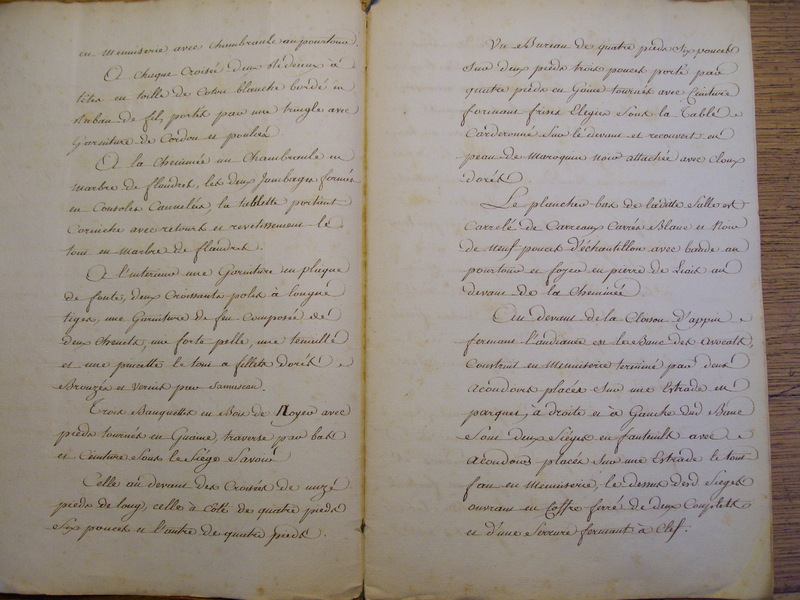 en Menuiserie avec chambranle au pourtour.
A chaque Croisée deux Rideaux à
têtes en toille de Coton blanche bordé en
Ruban de fil, portés par une tringle avec
Garniture de Cordon et poulies
A la cheminée un Chambranle en
marbre de flandres, les deux Jambages formés
en Consoles Cannelés, la tablette portant
Corniche avec retours et revetissement le
tout en marbre de flandres.
A l'interieur une Garniture en plaque
de fonte, deux Croissants polis à longue
tiges, une Garniture de feu composée de
deux chenets, une forte pelle, une tenaille
et une pincette le tout a fillets dorés
Bronzés et vernis par
Trois Banquettes en Bois de Noyer avec
pieds tournés en Guaine, traverse par bas
et Ceinture sous le Siége Savoir
Celle au devant des Croisées de onze
pieds de long, celle à coté de quatre pieds
Six pouces et l'autre de quatre pieds.
Un Bureau de quatre pieds Six pouces
Sur deux pieds trois pouces porté par
quatre pieds en Gaine tournés avec Ceinture
formant frises Elegies Sous la Table
Carderonné Sur le devant et recouvert en
peau de Maroquin noir attachée avec cloux
dorés
Le plancher bas de ladite Salle est
Carrelé de Carreaux Carrés Blanc et Noir
de Neuf pouces d'échantillon avec bande au
pourtour et foyer en pierre de Liais au
devant de la Cheminée
Au devant de la Cloison d'appui
fermant l'audience est le Banc des avocats,
Construit en Menuiserie terminé par deux
acoudoirs placés Sur une Estrade en
parquet, à droite et à Gauche dud Banc
Sont deux Siéges en fauteuils avec
acoudoirs placés Sur une Estrade le tout
fait en Menuiserie, le dessus desd Sieges
ouvrant en Coffre ferré de deux Couplets
et d'une Serrure fermant à Clef.